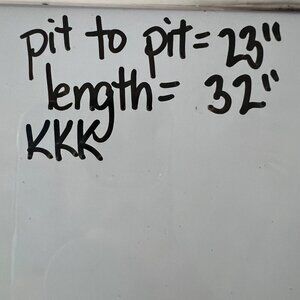 pit to pit= 23"
length= 32"
KKK